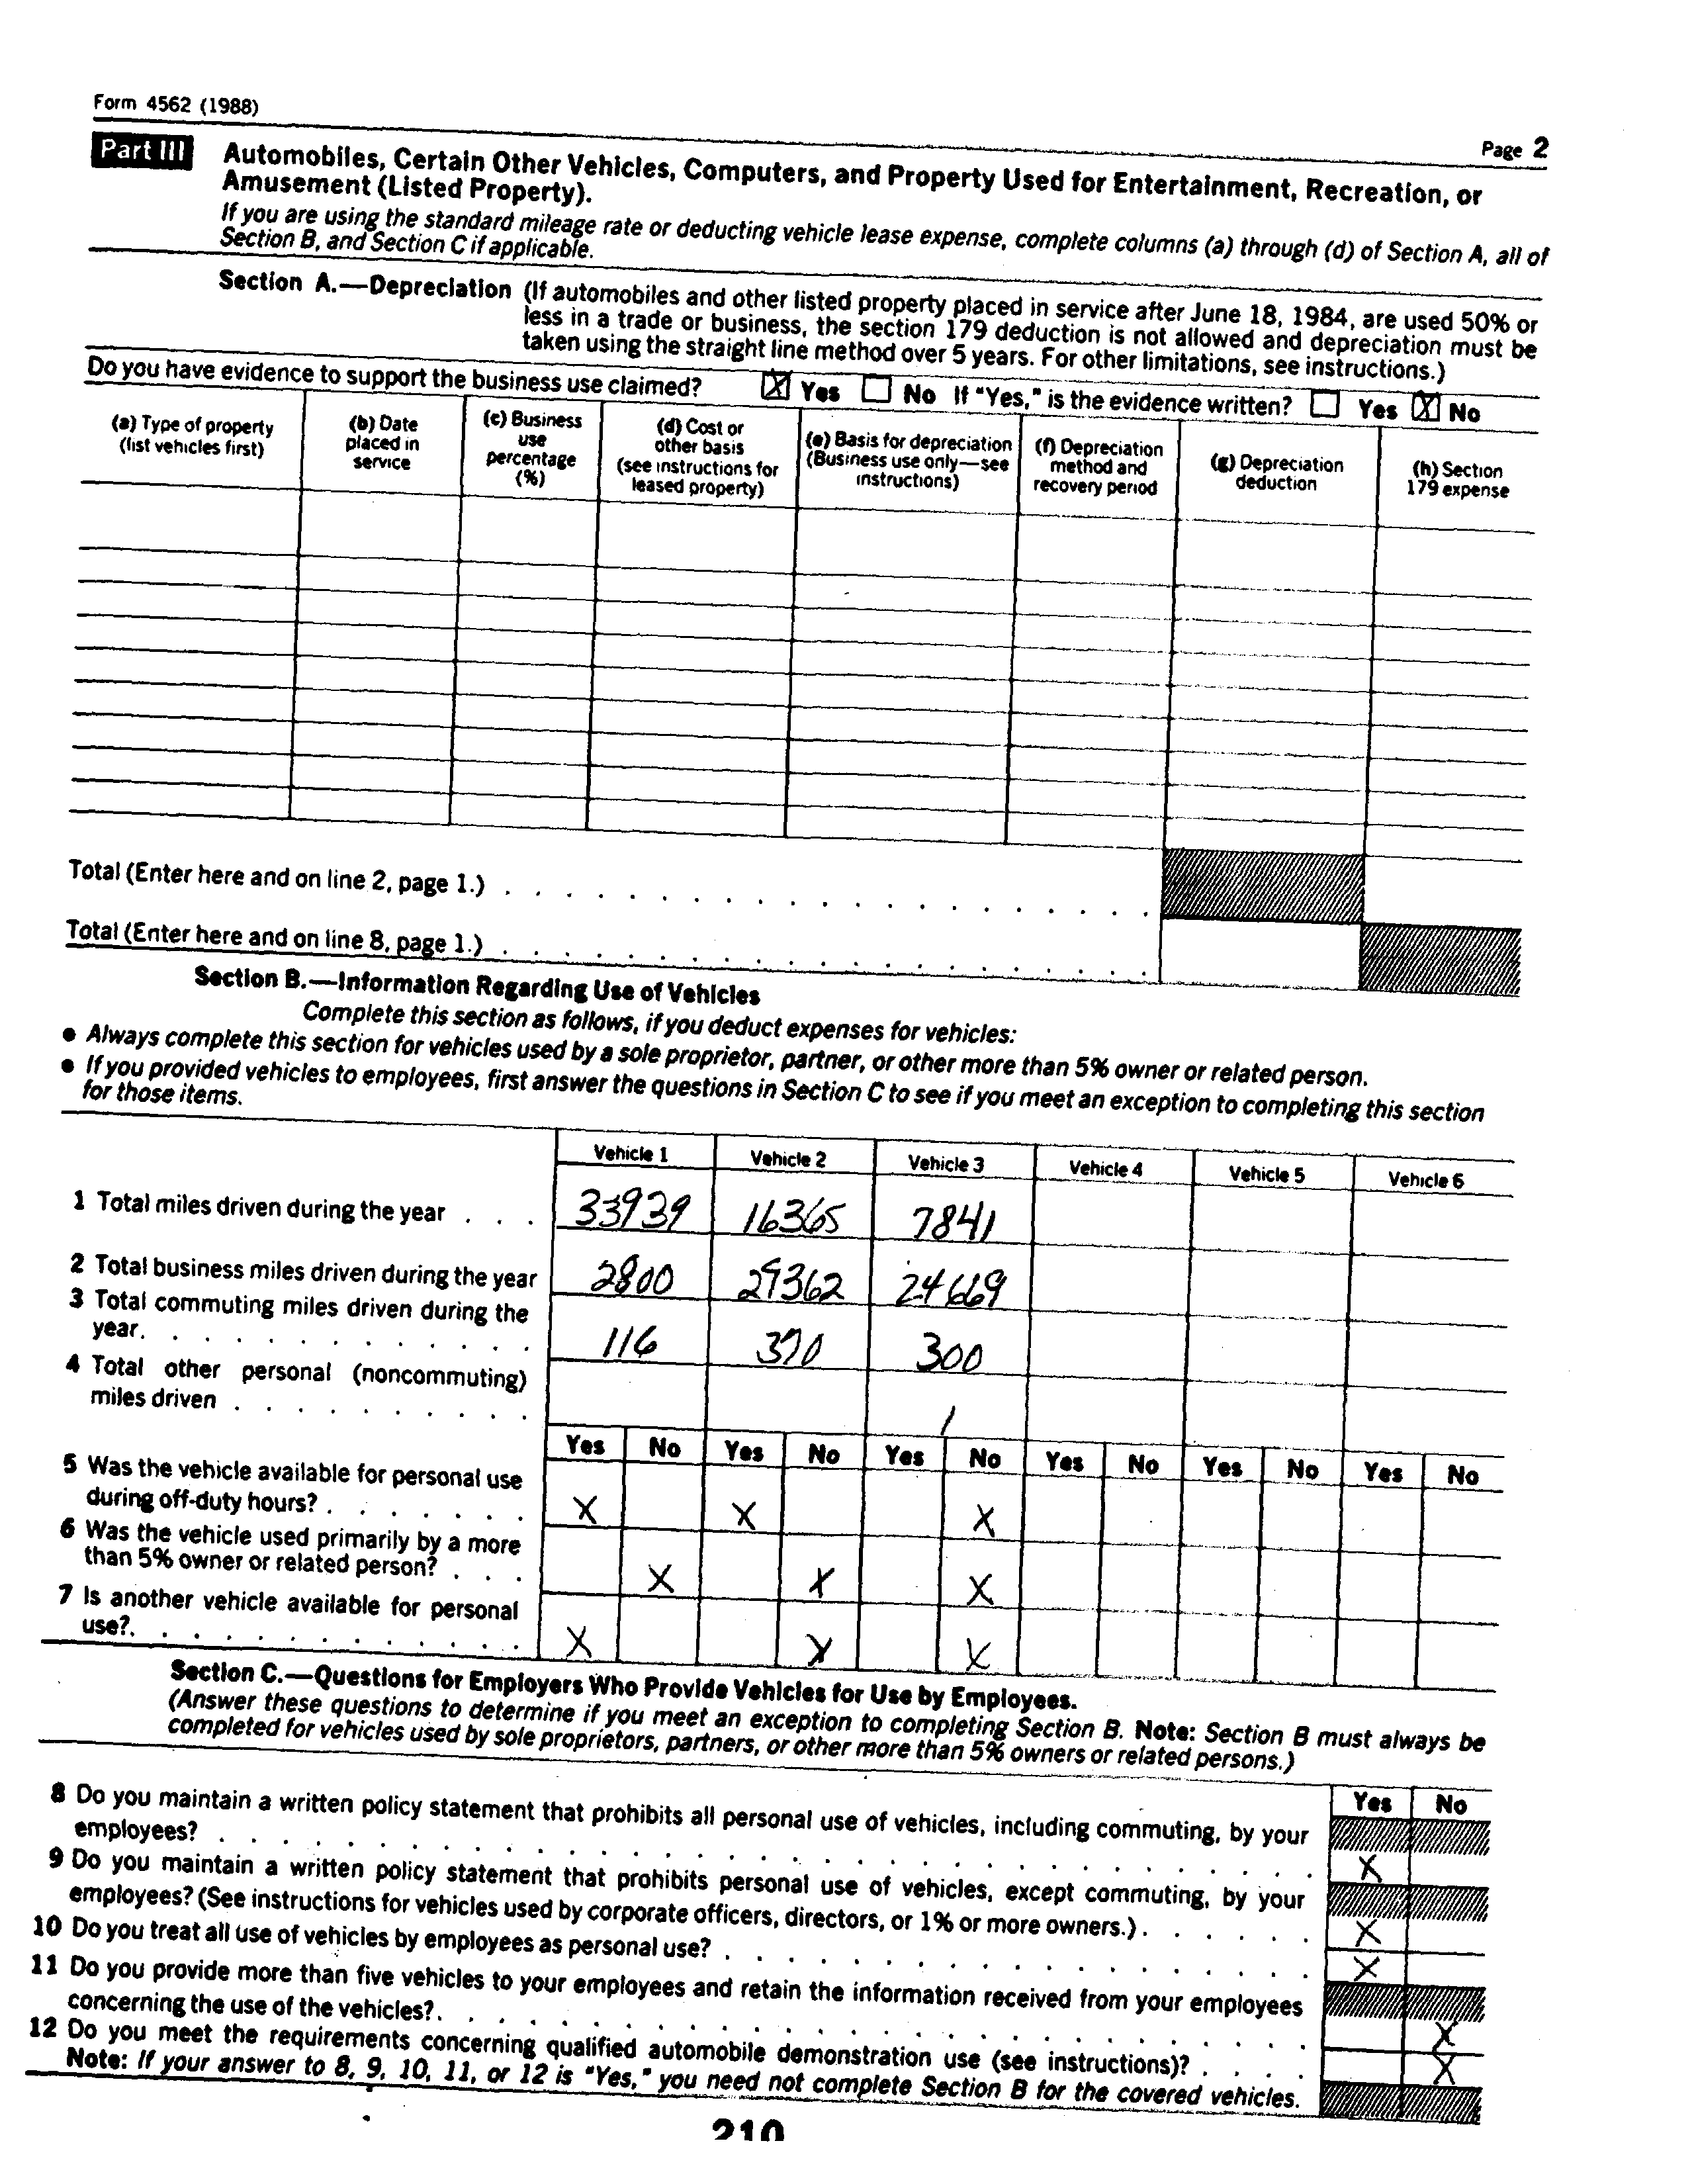 Form 4562 (1988)
Page 2
Part III Automobiles, Certain Other Vehicles, Computers, and Property Used for Entertainment, Recreation, or
Amusement (Listed Property).
If you are using the standard mileage rate or deducting vehicle lease expense, complete columns (a) through (d) of Section A, all of
Section B, and Section C if applicable.
Section A.—Depreciation (If automobiles and other listed property placed in service after June 18, 1984, are used 50% or
less in a trade or business, the section 179 deduction is not allowed and depreciation must be
taken using the straight line method over 5 years. For other limitations, see instructions.)
Do you have evidence to support the business use claimed? X Yes No If "Yes," is the evidence written? Yes X No
(a) Type of property
(list vehicles first)
(b) Date
placed in
service
(c) Business
use
percentage
(%)
(d) Cost or
other basis
(see instructions for
leased property)
(e) Basis for depreciation
(Business use only—see
instructions)
(f) Depreciation
method and
recovery period
(g) Depreciation
deduction
(h) Section
179 expense
Total (Enter here and on line 2, page 1.)
Total (Enter here and on line 8, page 1.)
Section B.—Information Regarding Use of Vehicles
Complete this section as follows, if you deduct expenses for vehicles:
● Always complete this section for vehicles used by a sole proprietor, partner, or other more than 5% owner or related person.
● If you provided vehicles to employees, first answer the questions in Section C to see if you meet an exception to completing this section
for those items.
Vehicle 1 Vehicle 2 Vehicle 3 Vehicle 4 Vehicle 5 Vehicle 6
1 Total miles driven during the year . . . 33939 16365 7841
2 Total business miles driven during the year 2800 29362 24669
3 Total commuting miles driven during the
year. . . . . . . . . . . . . 116 370 300
4 Total other personal (noncommuting)
miles driven . . . . . . . . . .
Yes No Yes No Yes No Yes No Yes No Yes No
5 Was the vehicle available for personal use
during off-duty hours? . . . . . . . X X X
6 Was the vehicle used primarily by a more
than 5% owner or related person? . . . X X X
7 Is another vehicle available for personal
use?. . . . . . . . . . . . . X X X
Section C.—Questions for Employers Who Provide Vehicles for Use by Employees.
(Answer these questions to determine if you meet an exception to completing Section B. Note: Section B must always be
completed for vehicles used by sole proprietors, partners, or other more than 5% owners or related persons.)
Yes No
8 Do you maintain a written policy statement that prohibits all personal use of vehicles, including commuting, by your
employees? X
9 Do you maintain a written policy statement that prohibits personal use of vehicles, except commuting, by your
employees? (See instructions for vehicles used by corporate officers, directors, or 1% or more owners.) . . . . . . X
10 Do you treat all use of vehicles by employees as personal use? X
11 Do you provide more than five vehicles to your employees and retain the information received from your employees
concerning the use of the vehicles?. X
12 Do you meet the requirements concerning qualified automobile demonstration use (see instructions)? . . . . X
Note: If your answer to 8, 9, 10, 11, or 12 is "Yes," you need not complete Section B for the covered vehicles.
210